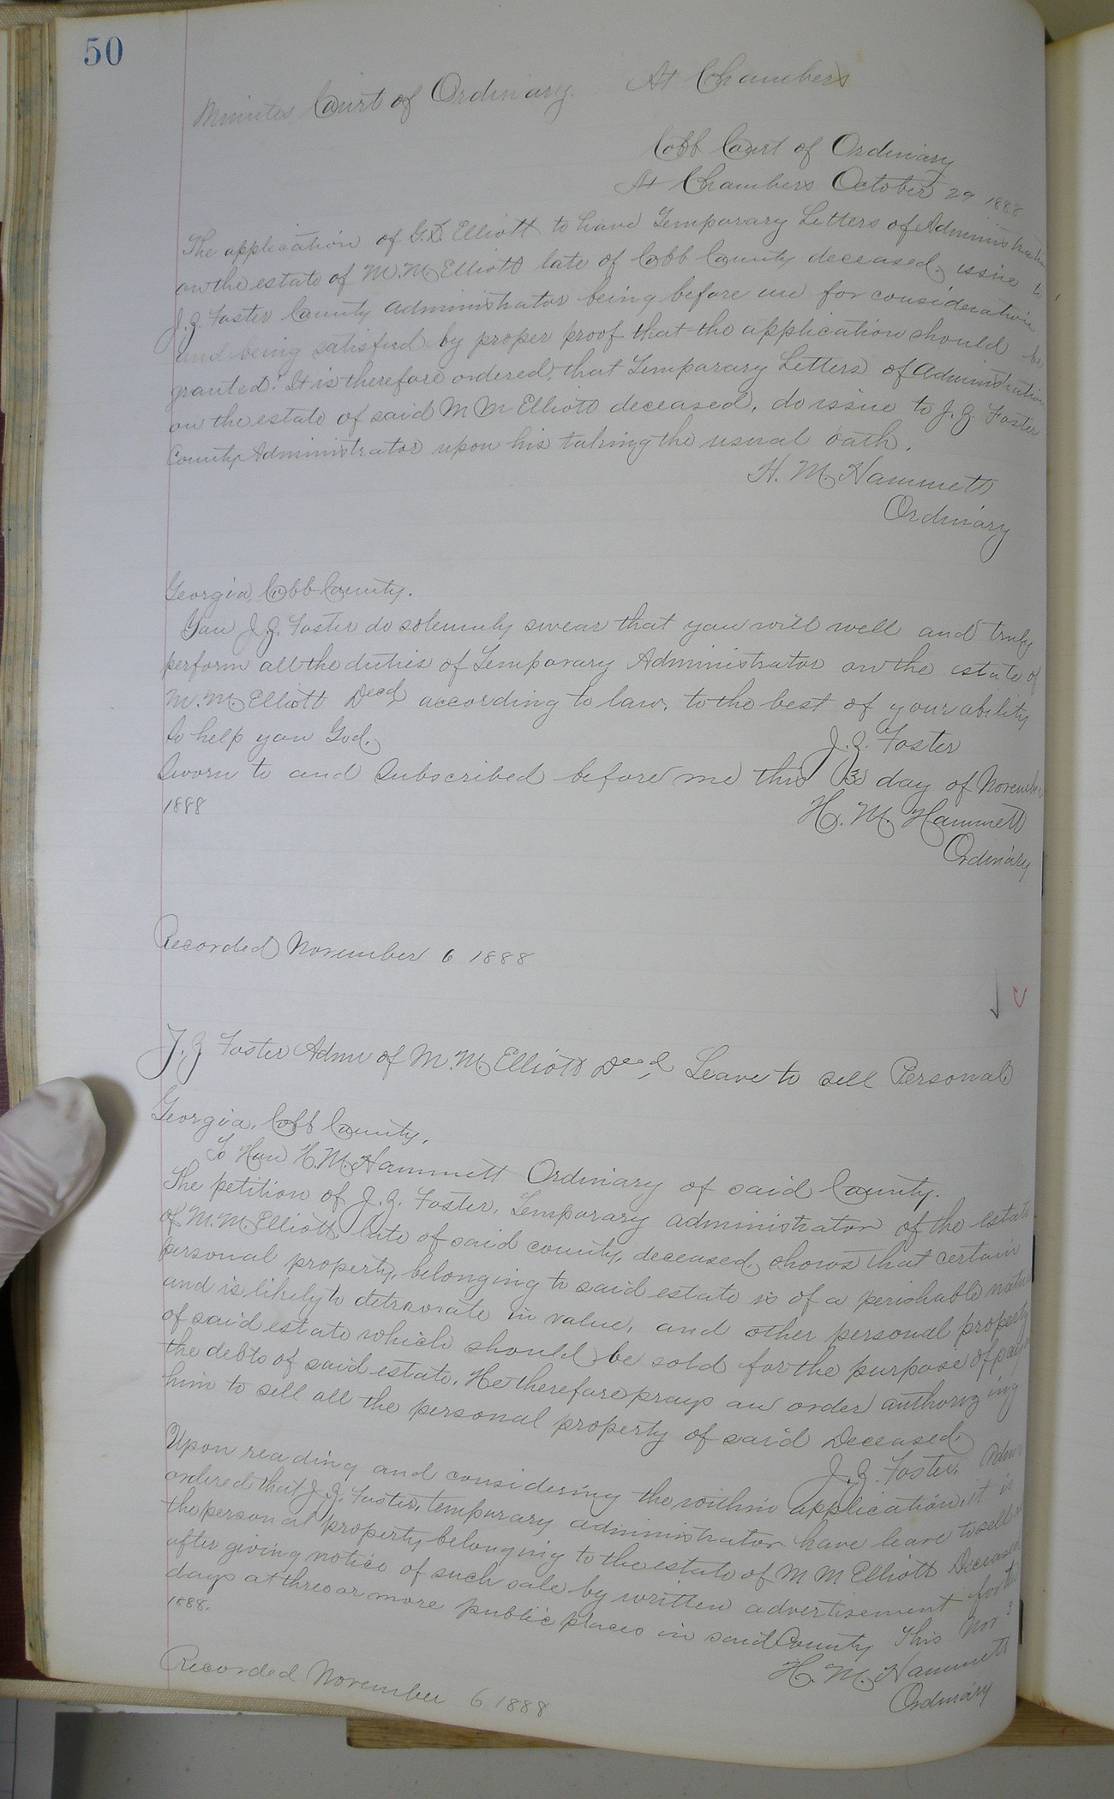 50
Minutes Court of Ordinary. At Chambers
Cobb Court of Ordinary
At Chambers October 29 1888
The application of G.T. Elliott to have Temporary Letters of Administration
on the estate of M. M. Elliott late of Cobb County deceased, issue to
J. Z. Foster County Administrator being before me for consideration
and being satisfied by proper proof that the application should be
granted. It is therefore ordered, that Temporary Letters of Administration
on the estate of said M M Elliott deceased, do issue to J. Z. Foster
County Administrator upon his taking the usual oath.
H. M. Hammett
Ordinary
Georgia, Cobb County.
You J. Z. Foster do solemnly swear that you will well and truly
perform all the duties of Temporary Administrator on the estate of
M. M. Elliott Decd according to law, to the best of your ability
So help you God.
J. Z. Foster
Sworn to and Subscribed before me this 3 day of November
1888
H. M. Hammett
Ordinary
Recorded November 6 1888
J. Z Foster Admr of M. M Elliott Decd, Leave to sell Personal
Georgia, Cobb County.
To Hon H. M. Hammett Ordinary of said County.
The petition of J. Z. Foster, Temporary administrator of the estate
of M. M. Elliott late of said county, deceased, shows that certain
personal property, belonging to said estate is of a perishable nature
and is likely to deteriorate in value, and other personal property
of said estate which should be sold for the purpose of paying
the debts of said estate. He therefore prays an order authorizing
him to sell all the personal property of said Deceased
J. Z. Foster, Admr
Upon reading and considering the within application it is
ordered that J. Z. Foster, temporary administrator have leave to sell
the personal property belonging to the estate of M M Elliott Deceased
after giving notice of such sale by written advertisement for
days at three or more public places in said County This Nov 3
1888.
H. M. Hammett
Ordinary
Recorded November 6 1888